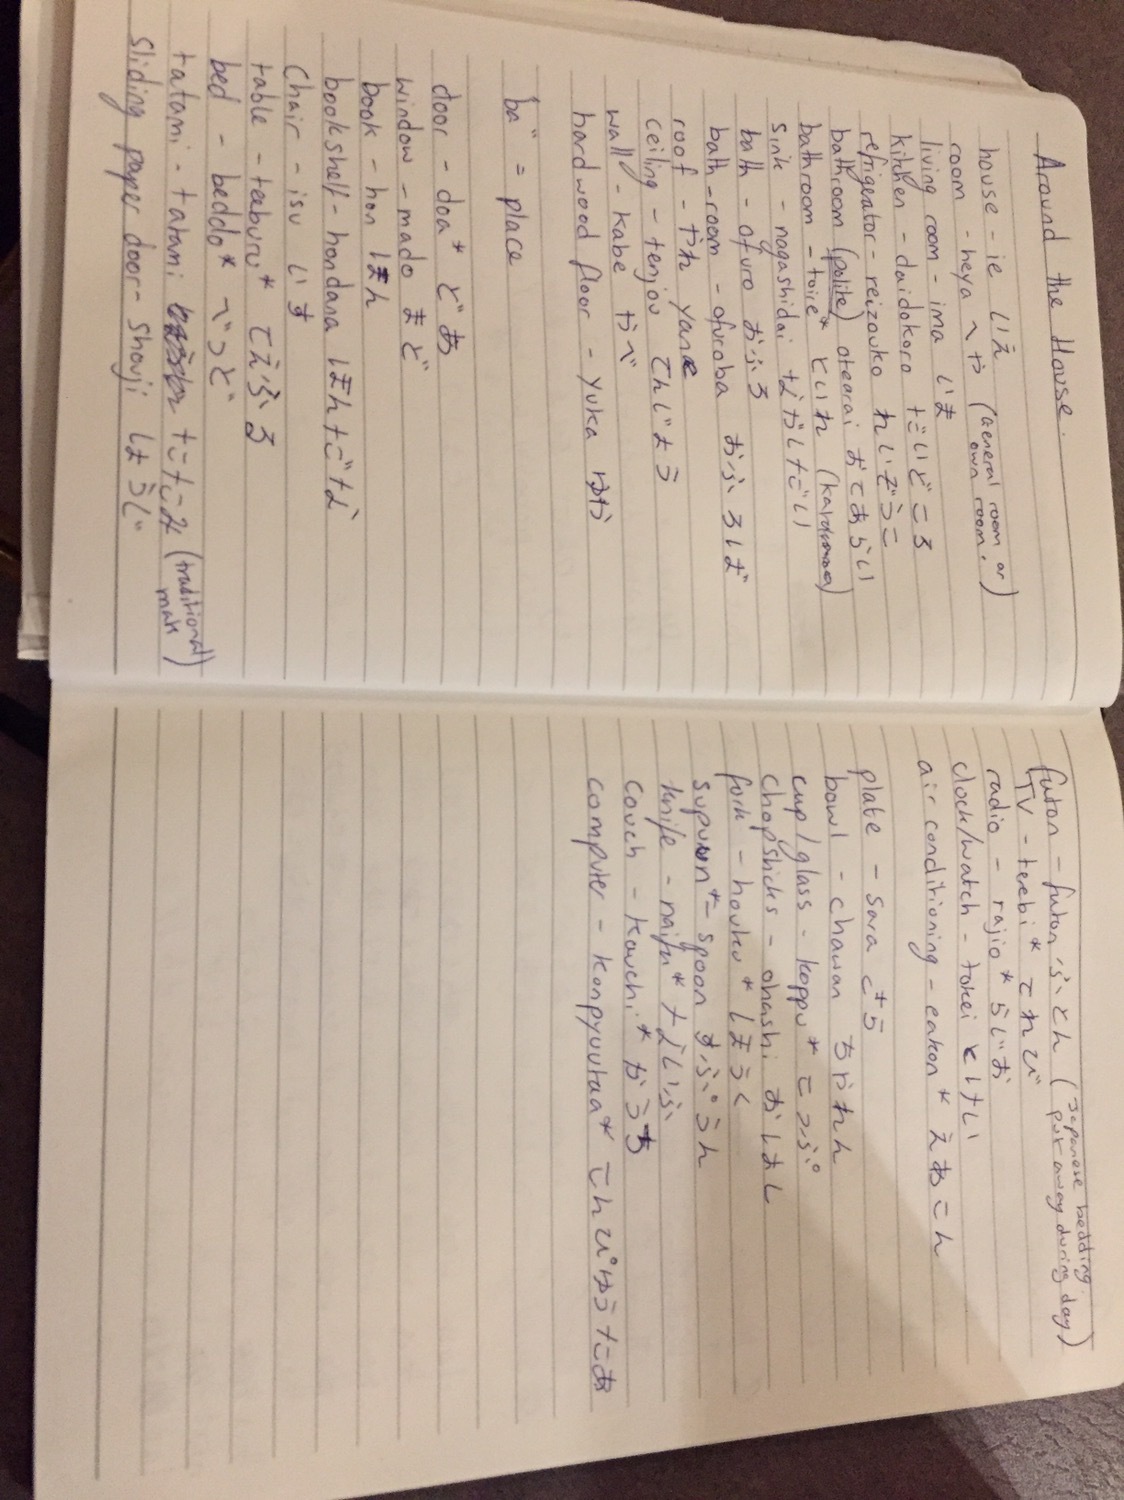 Around the House.
house - ie いえ
room - heya へや (General room or own room.)
living room - ima いま
kitchen - daidokoro だいどころ
refrigerator - reizouko れいぞうこ
bathroom (polite) otearai おてあらい
bathroom - toire* といれ
sink - nagashidai ながしだい
bath - ofuro おふろ
bath-room - ofuroba おふろば
roof - やね yane
ceiling - tenjou てんじょう
wall - kabe かべ
hardwood floor - yuka ゆか
"ba" = place
door - doa* どあ
window - mado まど
book - hon ほん
bookshelf - hondana ほんだな
Chair - isu いす
table - teaburu* てえぶる
bed - beddo* べっど
tatami - tatami たたみ (traditional mat)
sliding paper door - shouji しょうじ
futon - futon ふとん (Japanese bedding. put away during day)
TV - terebi* てれび
radio - rajio* らじお
clock/watch - tokei とけい
air conditioning - eakon* えあこん
plate - sara さら
bowl - chawan ちゃわん
cup/glass - koppu* こっぷ
chopsticks - ohashi おはし
fork - houku* ほうく
supuun* - spoon すぷうん
knife - naifu* ないふ
couch - kauchi* かうち
computer - konpyuutaa* こんぴゅうたあ